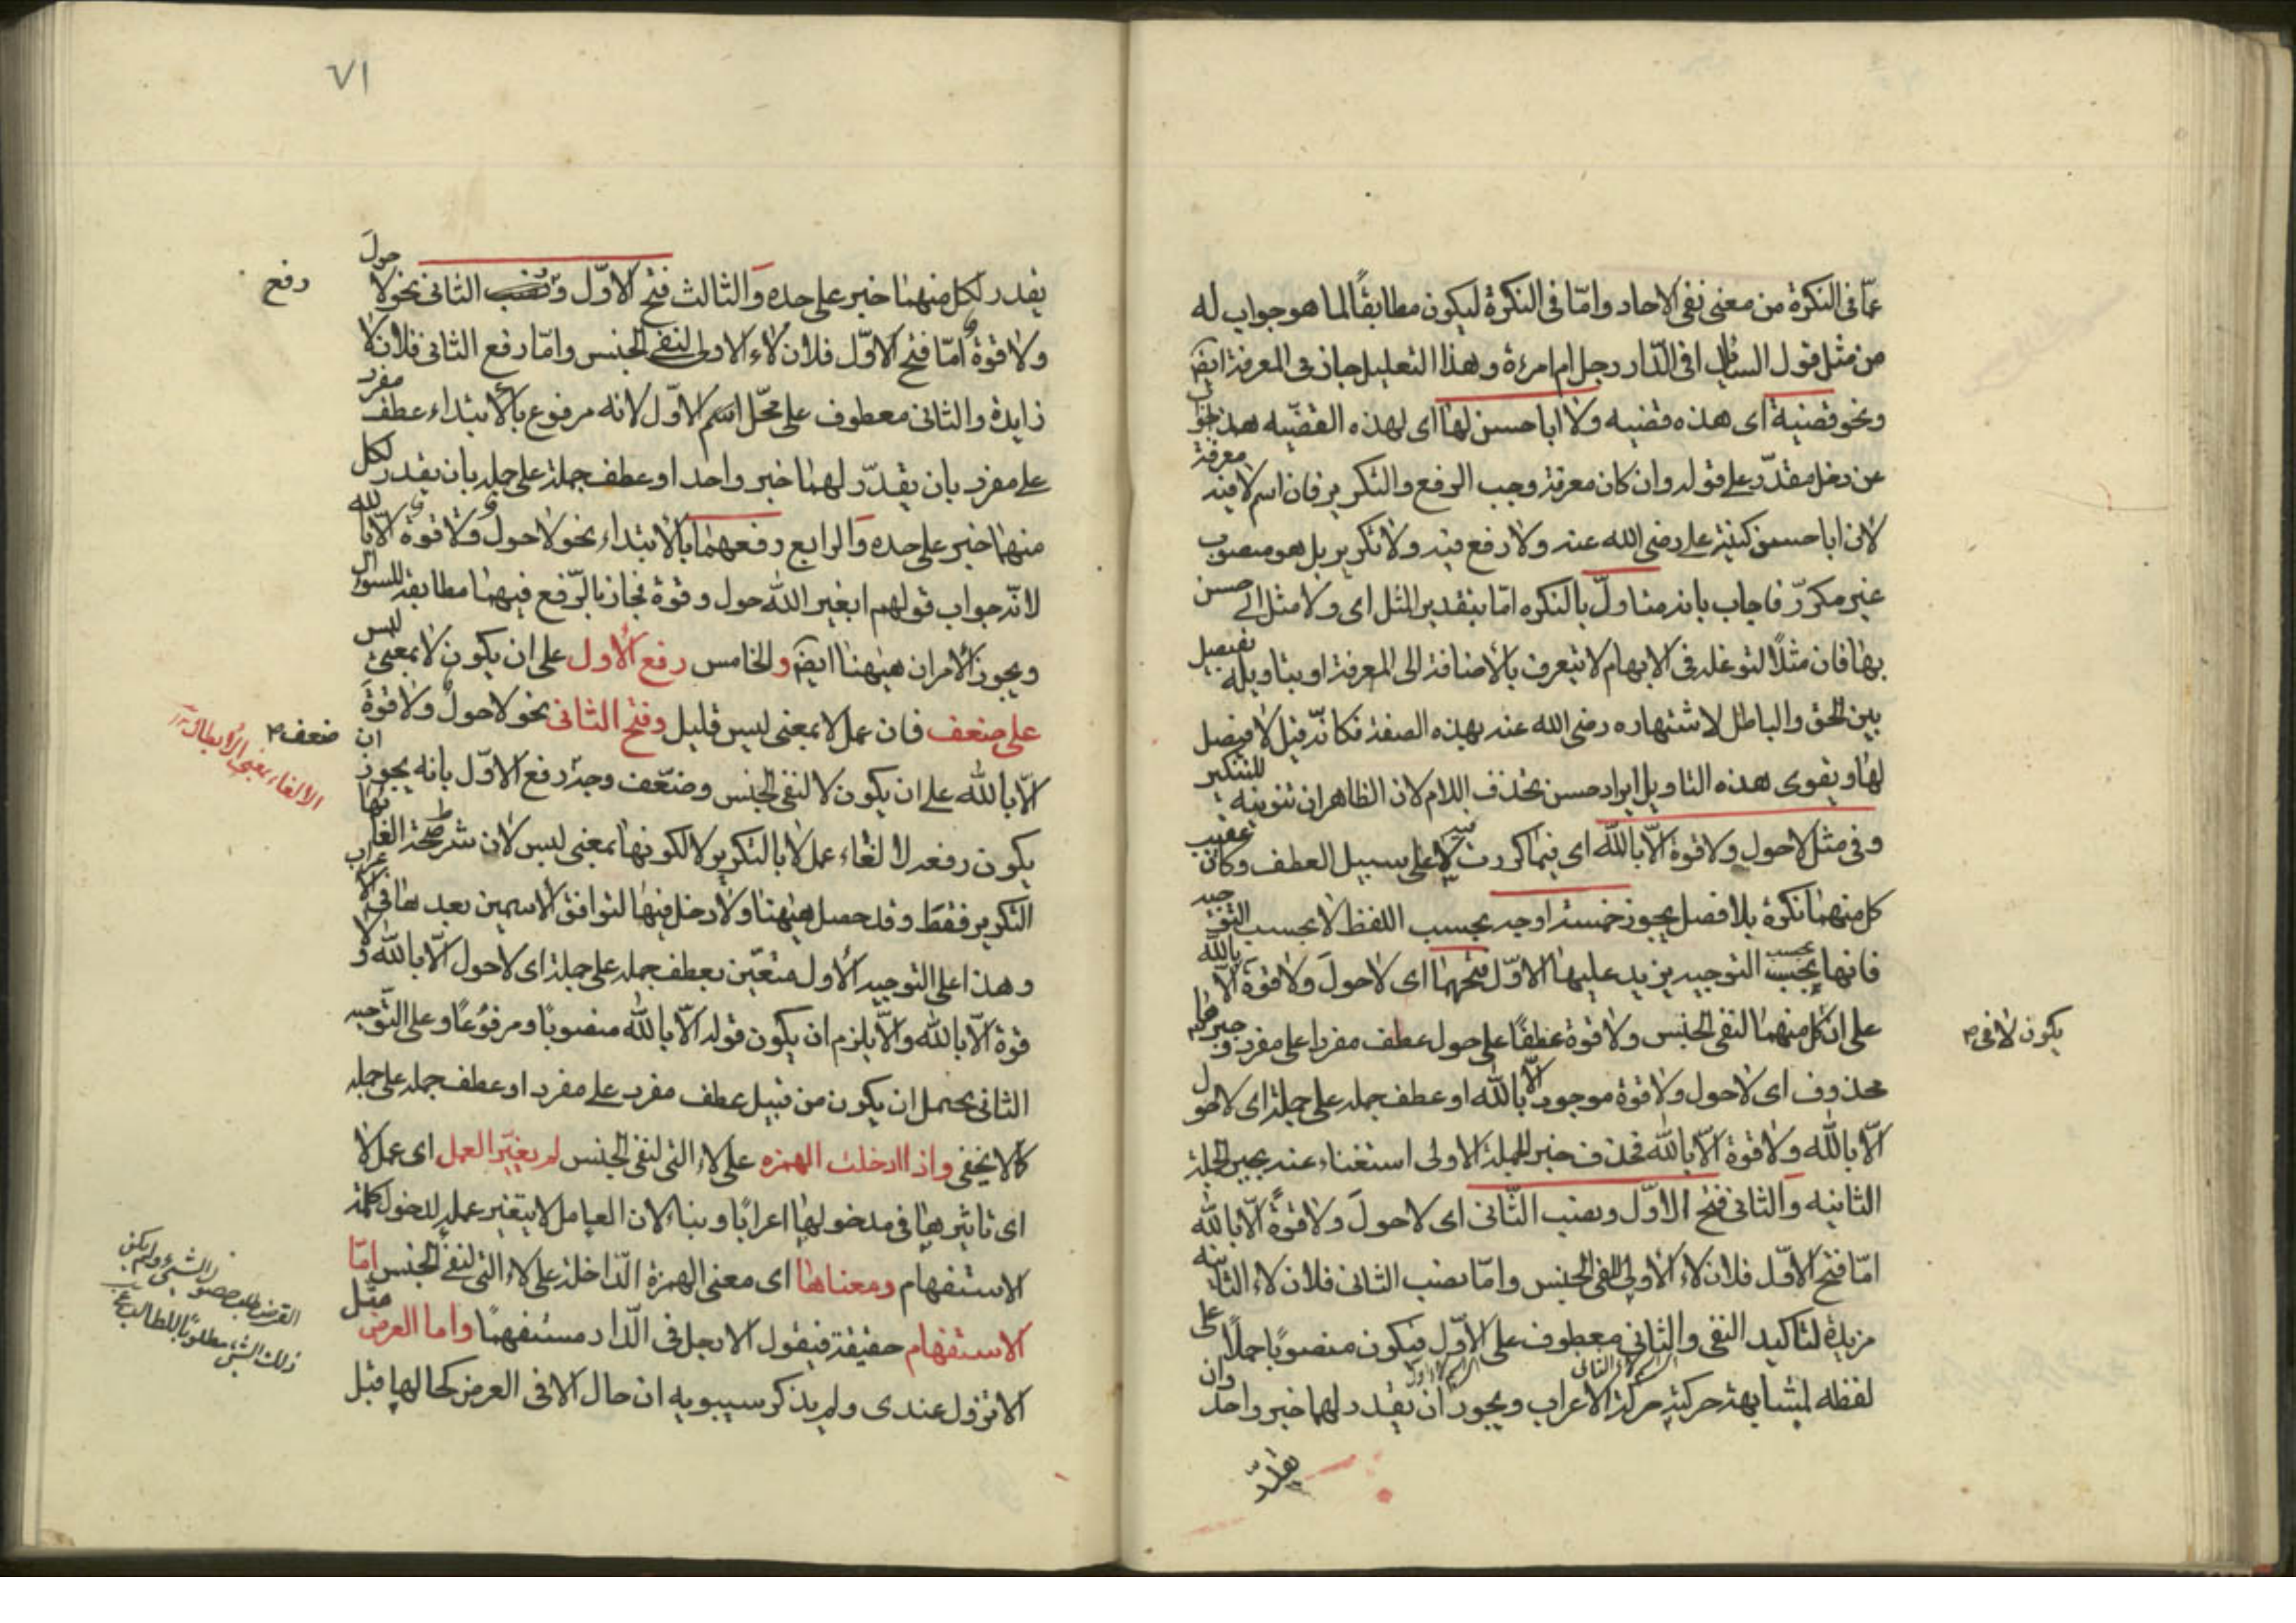 عمّا فى النكرة من معنى نفى الاحاد وامّا فى النكرة ليكون مطابقًا لما هو جواب له
من مثل قول السائل افى الدّار رجل ام امرءة وهذا التعليل جاز فى المعرفة ايض
ونحو قضية اى هذه قضيه ولا ابا حسن لها اى لهذه القضّيه هذا جواب
عن دخل مقدّر على قوله وان كان معرفة وجب الرفع والتكرير فان اسم لا فيه معرفة
لان ابا حسن كنية على رضى الله عنه ولا رفع فيه ولا تكرير بل هو منصوب
غير مكرّر فاجاب بانه متاولّ بالنكره امّا بتقدير المثل اى ولا مثل ابى حسن
بها فان مثلًا لتوغله فى الابهام لا يتعرف بالاضافة الى المعرفة او بتاويله بفيصل
بين الحق والباطل لاشتهاره رضى الله عنه بهذه الصفة فكانّه قيل لا فيصل
لها ويقوى هذه التاويل ايراد حسن بحذف اللام لان الظاهر ان تنوينه للتنكير
وفى مثل لا حول ولا قوة الّا بالله اى فيما كررت فيه لا على سبيل العطف وكان عقيب
كل منهما نكرة بلا فصل يجوز خمسة اوجه بحسب اللفظ لا بحسب التوجيه
فانها بحسب التوجيه يزيد عليها الاوّل فتحهما اى لا حولَ ولا قوة الّا بالله
على ان كل منهما لنفى الجنس ولا قوة عطفًا على حول عطف مفرد على مفرد وخبرهما
يكون لا فى
محذوف اى لا حول ولا قوة موجود الّا بالله او عطف جمله على جملة اى لا حول
الّا بالله ولا قوة الّا بالله فحذف خبر الجملة الاولى استغناء عنه بخبر الجملة
الثانيه والثانى فتح الاوّل ونصب الثّانى اى لا حولَ ولا قوةً الّا بالله
امّا فتح الاوّل فلان لاء الاولى لنفى الجنس وامّا نصب الثانى فلان لاء الثانيه
مزيدة لتاكيد النفى والثانى معطوف على الاوّل فيكون منصوبًا حملًا على
لفظه لمشابهة حركته حركة الاعراب ويجوز ان يقدر لهما خبر واحد وان
يقدّر
٧١
يقدر لكل منهما خبر على حده والثالث فتح الاوّل ورفع الثانى نحو لا حولَ
رفع
ولا قوةٌ امّا فتح الاوّل فلان لاء الاولى لنفى الجنس وامّا رفع الثانى فلان لا
زايدة والثانى معطوف على محّل اسم الاوّل لانه مرفوع بالابتداء عطف مفرد
على مفرد بان يقدّر لهما خبر واحد او عطف جملة على جمله بان يقدر لكل
منهما خبر على حده والرابع رفعهما بالابتداء نحو لا حول ولا قوة الّا بالله
لانّه جواب قولهم ابغير الله حول وقوة فجاز بالرّفع فيهما مطابقة للسوال
ويجوز الامران ههنا ايض والخامس رفع الاول على ان يكون لا بمعنى ليس
على ضعف فان عمل لا بمعنى ليس قليل وفتح الثانى نحو لا حولٌ ولا قوةَ
الّا بالله على ان يكون لا لنفى الجنس وضعّف وجه رفع الاوّل بانه يجوز ان
ضعف
الالغاء بمعنى الابطال
يكون رفعه لالغاء عمل لا بالتكرير لا لكونها بمعنى ليس لان شرط صحة الغائها
التكرير فقط وقد حصل ههنا ولا دخل فيها لتوافق الاسمين بعدها فى الاعراب
وهذا على التوجيه الاول متعيّن بعطف جمله على جملة اى لا حول الّا بالله ولا
قوة الّا بالله والّا يلزم ان يكون قوله الّا بالله منصوبًا ومرفوعًا وعلى التّوجيه
الثانى يحتمل ان يكون من قبيل عطف مفرد على مفرد او عطف جمله على جمله
كما لا يخفى واذا ادخلت الهمزه على لاء التى لنفى الجنس لم يغيّر العمل اى عمل لا
اى تاثيرها فى مدخولها اعرابًا وبناء لان العامل لا يتغير عمله لدخول كلمة
الاستفهام ومعناها اى معنى الهمزة الدّاخلة على لاء التى لنفى الجنس امّا
الاستفهام حقيقة فيقول الا رجل فى الدّار مستفهمًا واما العرض مثل
الا نزول عندى ولم يذكر سيبويه ان حال الا فى العرض كحالها قبل